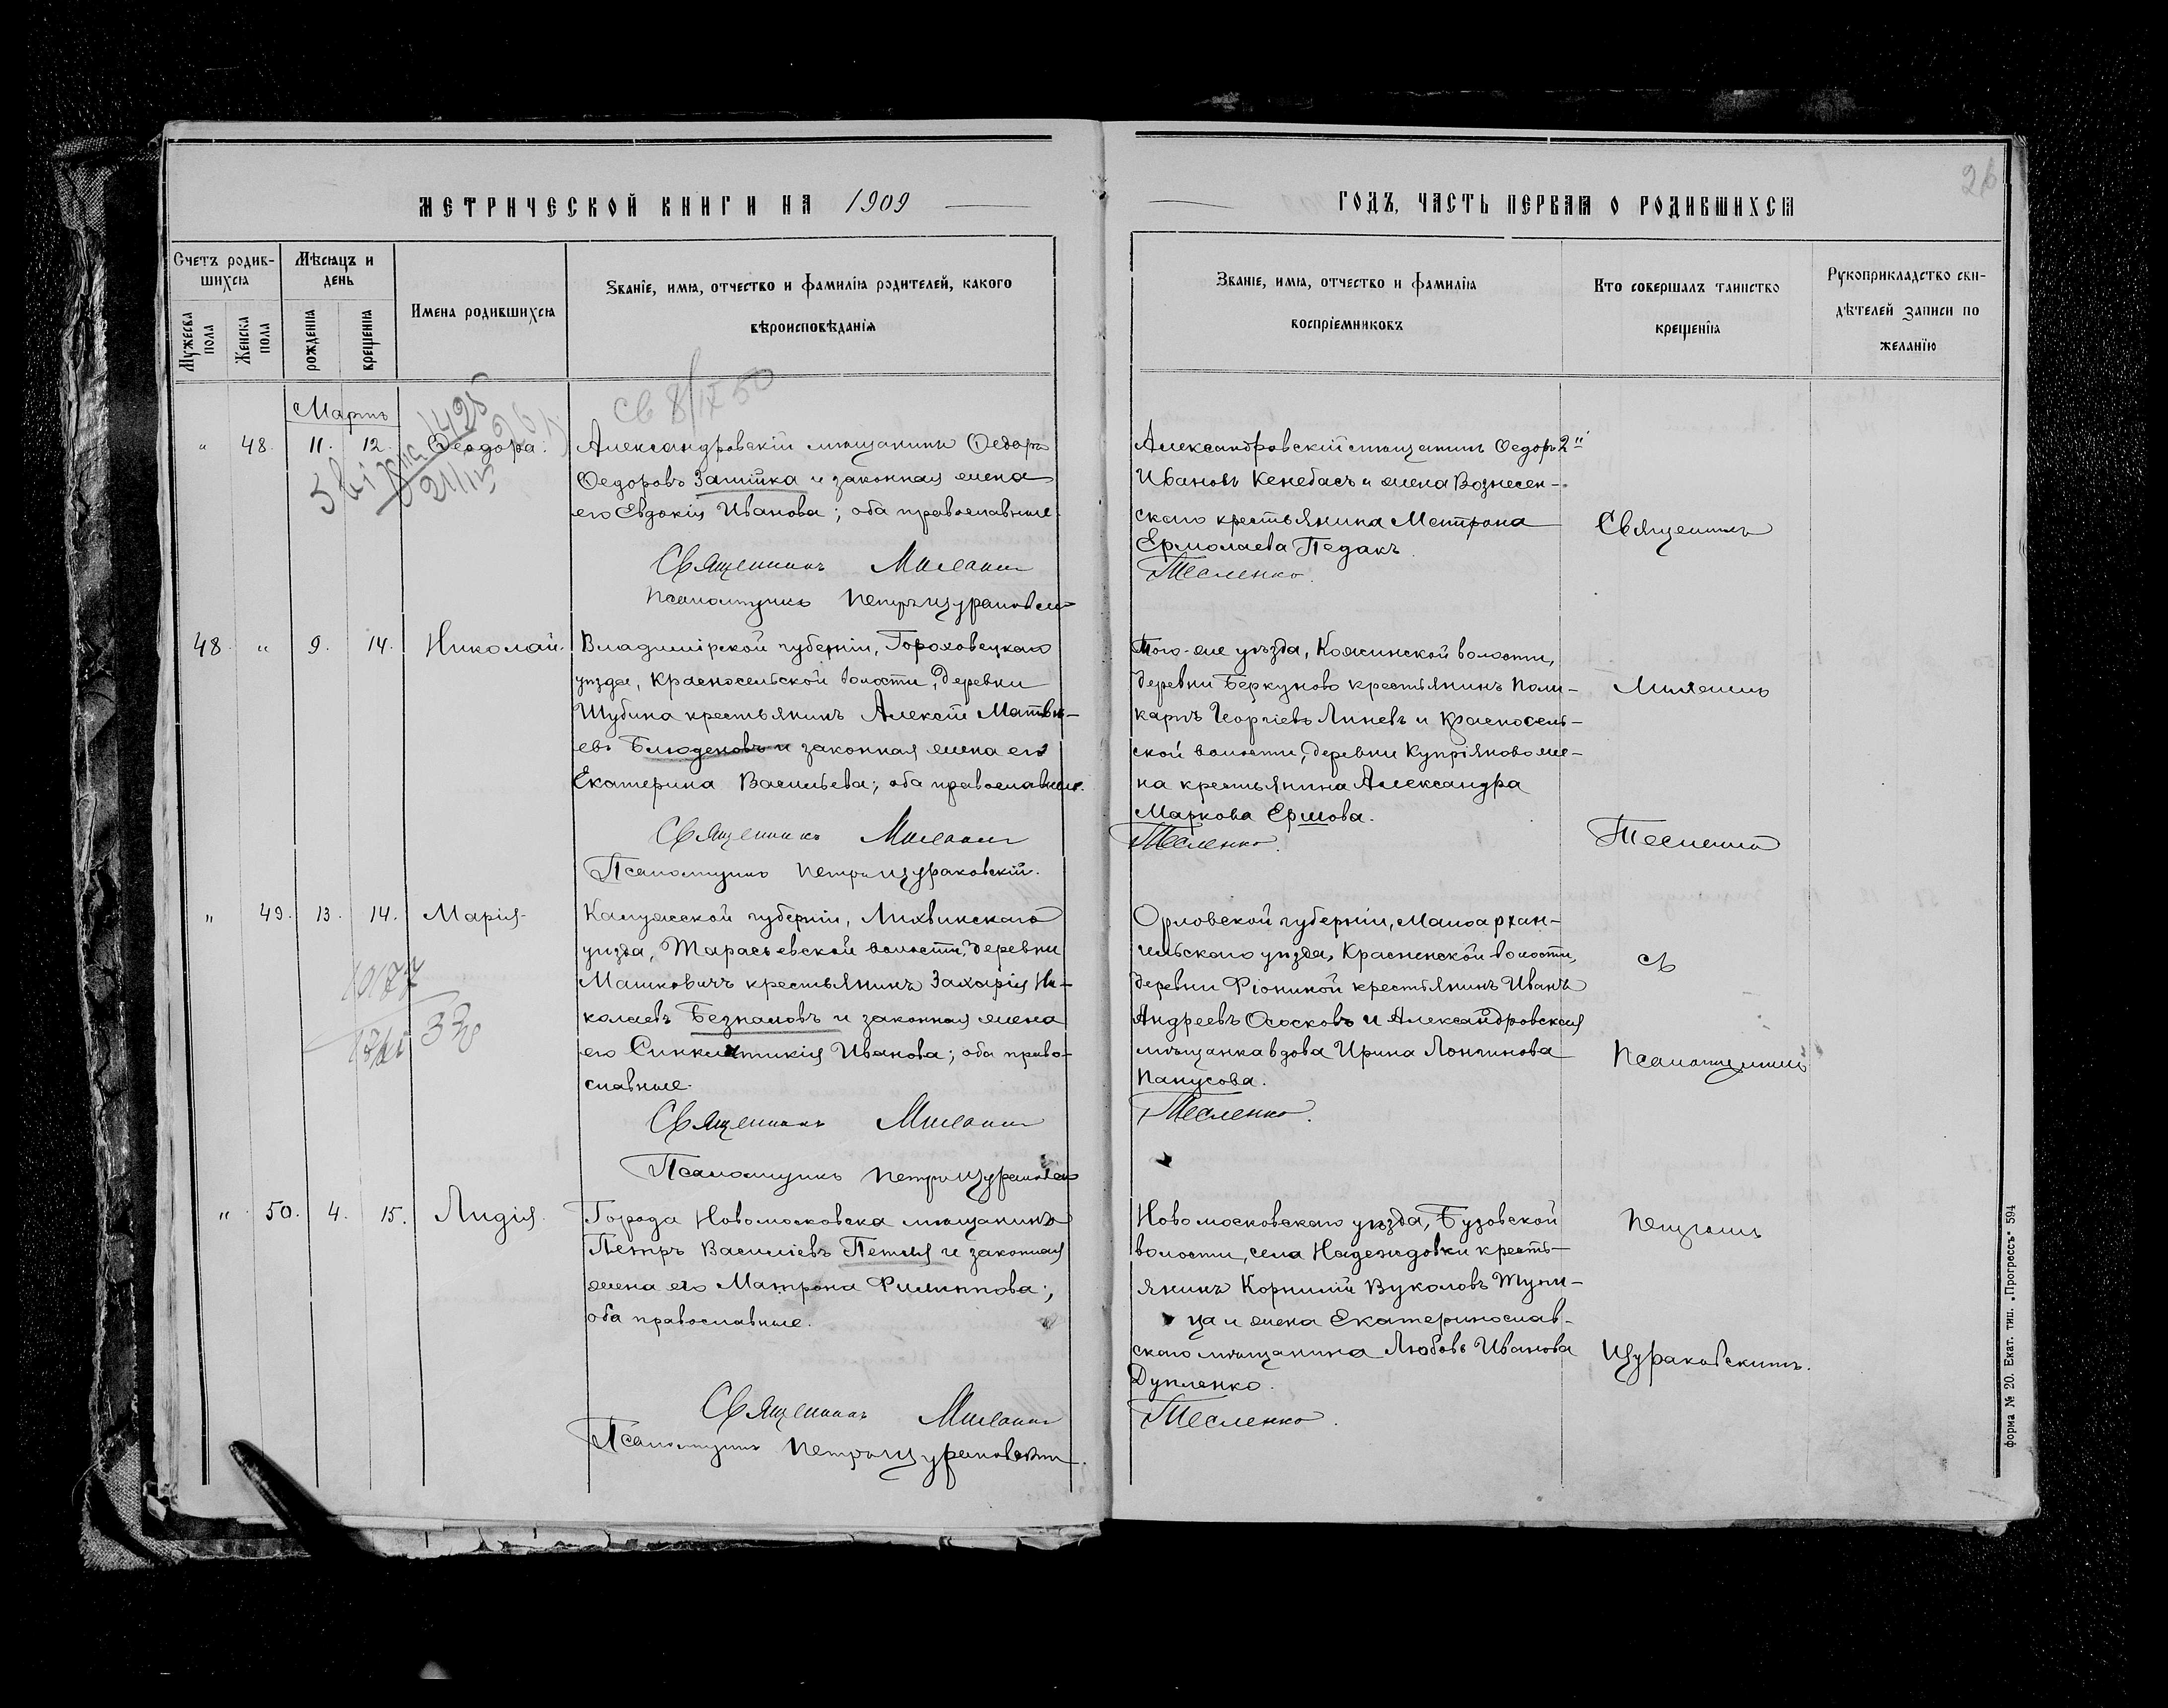 МЕТРИЧЕСКОЙ КНИГИ НА 1909
Счетъ родив-
шихся
Мѣсяцъ и
день
Мужеска
пола
Женска
пола
рожденія
крещенія
Имена родившихся
Званіе, имя, отчество и фамилія родителей, какого
вѣроисповѣданія
Св 8/IX 50
Мартъ
" 48. 11. 12. Ѳеодора.
21/II 5
Александровскій мѣщанинъ Ѳедоръ
Ѳедоровъ и законная жена
его Евдокія Иванова; оба православные.
Священникъ
Псаломщикъ Петръ Щураковскій
48. " 9. 14. Николай.
Владимірской губерніи, Гороховецкаго
уѣзда, Красносельской волости, деревни
Шубина крестьянинъ Алексѣй Матвѣ-
евъ Блюденовъ и законная жена его
Екатерина Васильева; оба православные.
Священникъ
Псаломщикъ Петръ Щураковскій.
" 49. 13. 14. Марія.
Калужской губерніи, Лихвинскаго
уѣзда, Тарасьевской волости, деревни
Машковичъ крестьянинъ Захарія Ни-
колаевъ Безпаловъ и законная жена
его Синклитикія Иванова; оба право-
славные.
Священникъ
Псаломщикъ Петръ Щураковскій
" 50. 4. 15. Лидія.
Города Новомосковска мѣщанинъ
Петръ Василіевъ Петля и законная
жена его Матрона Филиппова;
оба православные.
Священникъ
Псаломщикъ Петръ Щураковскій.
26
ГОДЪ, ЧАСТЬ ПЕРВАЯ О РОДИВШИХСЯ
Званіе, имя, отчество и фамилія
воспріемниковъ
Кто совершалъ таинство
крещенія
Рукоприкладство сви-
дѣтелей записи по
желанію
Александровскій мѣщанинъ Ѳедоръ 2й
Ивановъ Кенебасъ и жена Вознесен-
скаго крестьянина Матрона
Ермолаева Педакъ.
Тесленко.
Того-же уѣзда, Кожинской волости,
деревни Беркуново крестьянинъ Поли-
карпъ Георгіевъ Линевъ и Красносель-
ской волости, деревни Купріяново же-
на крестьянина Александра
Маркова Ершова.
Тесленко.
Орловской губерніи, Малоархан-
гельскаго уѣзда, Красненской волости,
деревни Фіониной крестьянинъ Иванъ
Андреевъ Ососковъ и Александровская
мѣщанка вдова Ирина Лонгинова
Папусова.
Тесленко.
Новомосковскаго уѣзда, Бузовской
волости, села Надеждовки кресть-
янинъ Корнилій Вуколовъ Тупи-
ца и жена Екатеринослав-
скаго мѣщанина Любовь Иванова
Дупленко.
Тесленко.
Священникъ
Тесленко
съ
Псаломщикомъ
Петромъ
Щураковскимъ.
форма № 20. Екат. тип. „Прогрессъ" 594